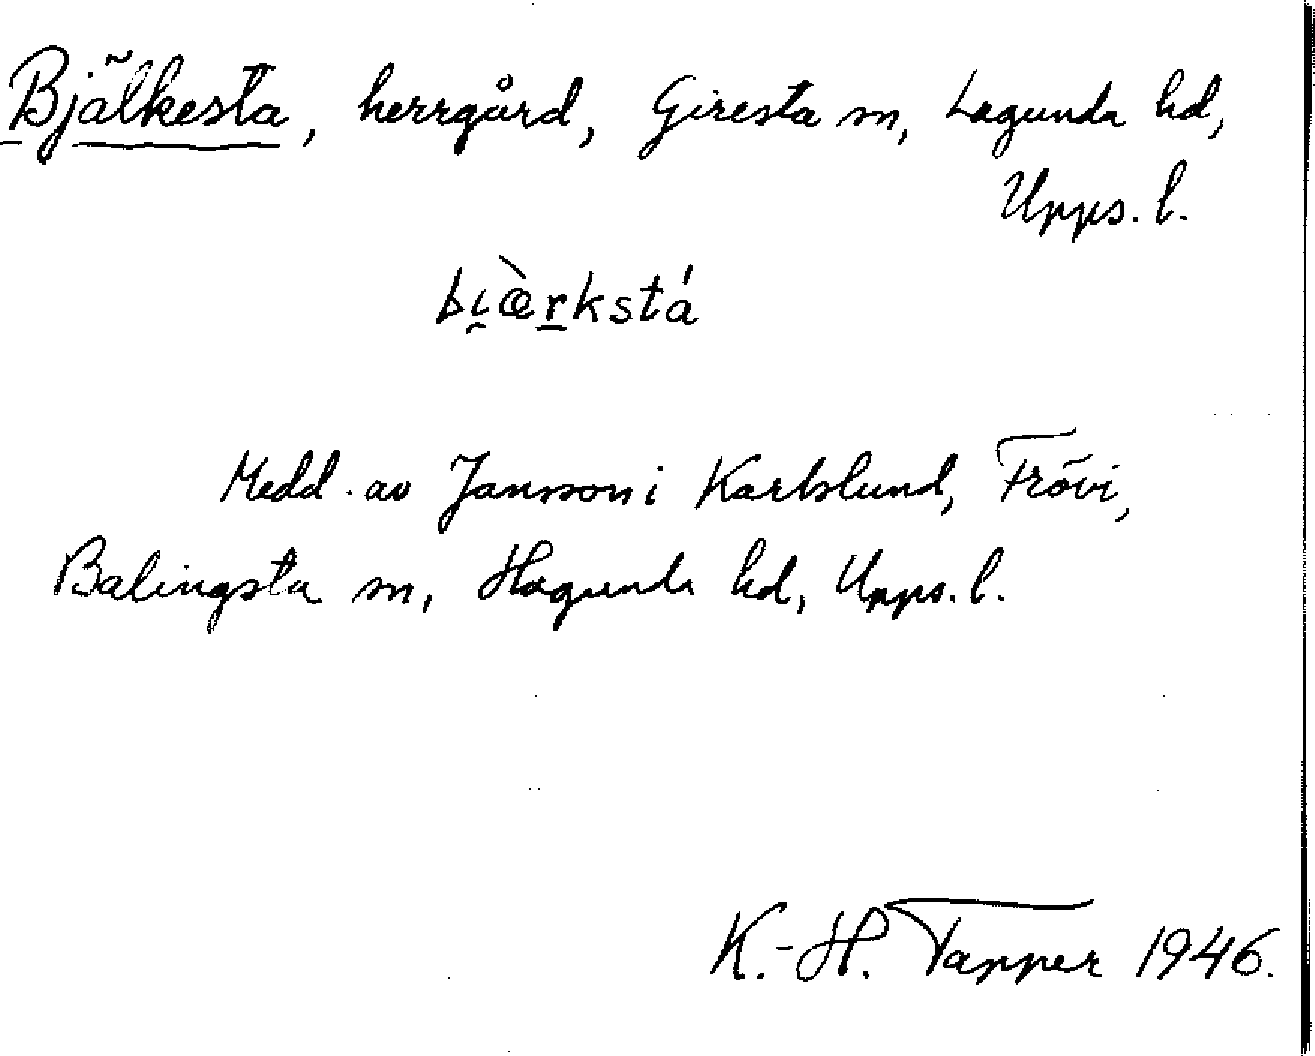 Bjälkesta, herrgård, Giresta sn, Lagunda hd,
Upps. l.
bi̯æ̀r̲kstá
Medd. av Jansson i Karlslund, Frövi,
Balingsta sn, Hagunda hd, Upps. l.
K.-H. Tapper 1946.